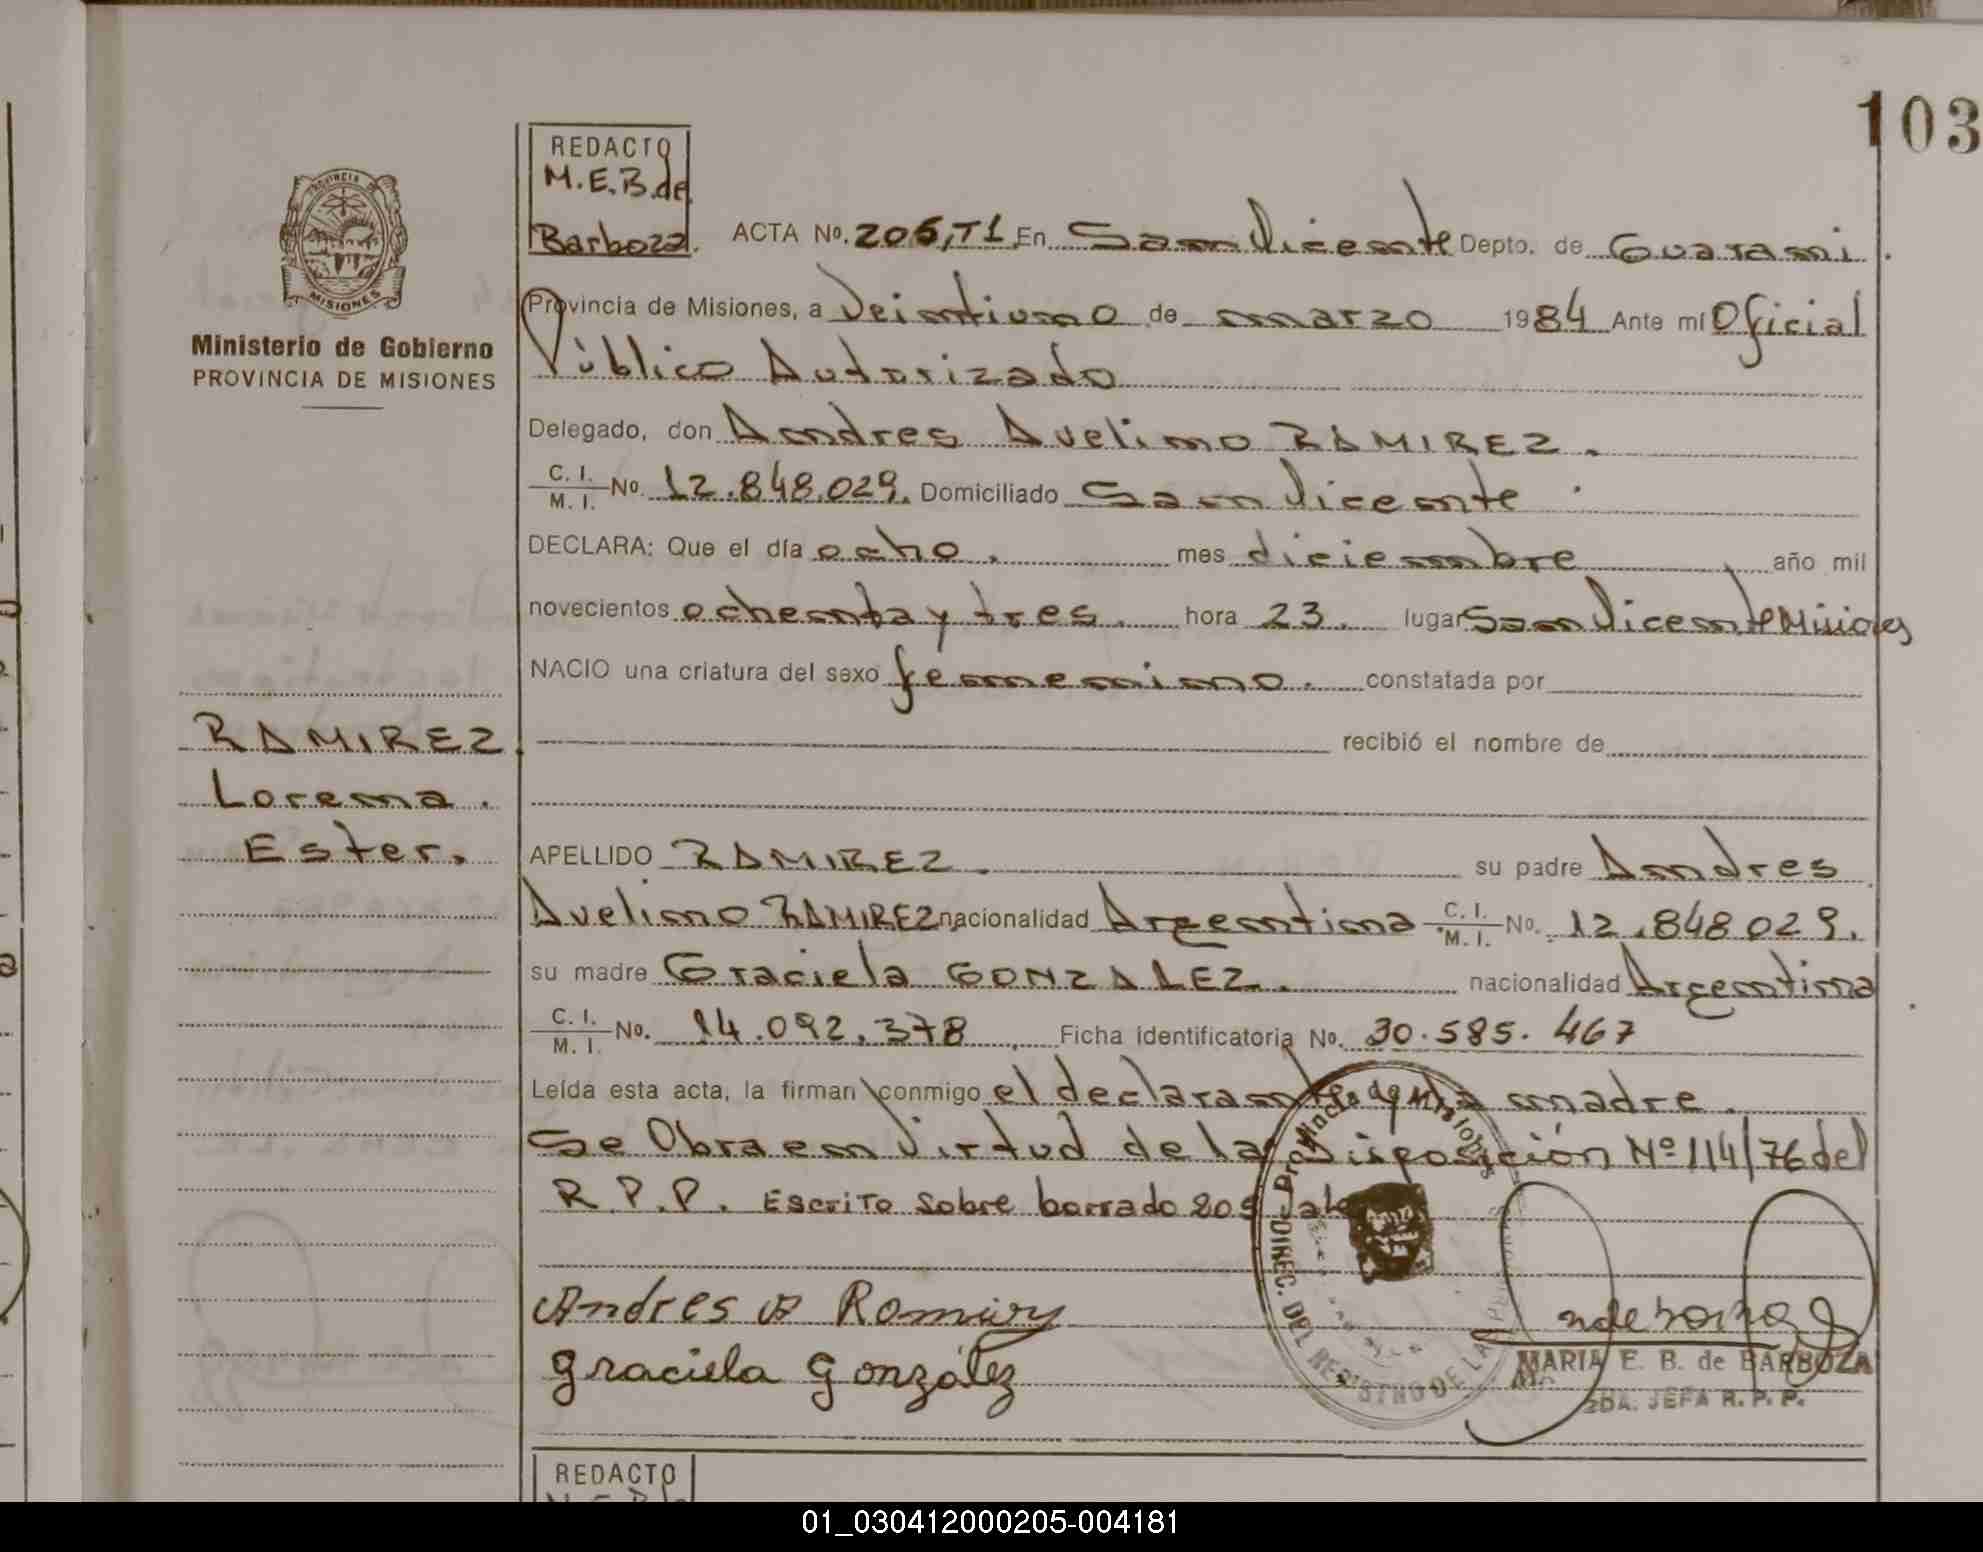 103
REDACTO
M.E.B.de
Barboza.
ACTA Nº. 205,T1 En San Vicente Depto. de Guarani.
Provincia de Misiones, a Veintiuno de marzo 1984 Ante mí Oficial
Público Autorizado
Delegado, don Andres Avelino RAMIREZ.
C. I. / M. I. Nº. 12.848.029. Domiciliado San Vicente.
DECLARA: Que el día ocho. mes diciembre año mil
novecientos ochenta y tres. hora 23. lugar San Vicente Misiones
NACIO una criatura del sexo femenino. constatada por
recibió el nombre de
APELLIDO RAMIREZ. su padre Andres
Avelino RAMIREZ, nacionalidad Argentina C. I. / M. I. Nº. 12.848.029.
su madre Graciela GONZALEZ. nacionalidad Argentina
C. I. / M. I. Nº. 14.092.378 Ficha identificatoria Nº. 30.585.467
Leída esta acta, la firman conmigo el declarante y la madre.
Se Obra en Virtud de la Disposición Nº 114/76 del
R.P.P. Escrito sobre borrado 205 Vale
Andres A Ramirez
Graciela González
MARIA E. B. de BARBOZA
2DA. JEFA R. P. P.
Provincia de Misiones
DIREC. DEL REGISTRO DE LAS PERSONAS
PROVINCIA DE
MISIONES
Ministerio de Gobierno
PROVINCIA DE MISIONES
RAMIREZ
Lorena.
Ester.
REDACTO
01_030412000205-004181